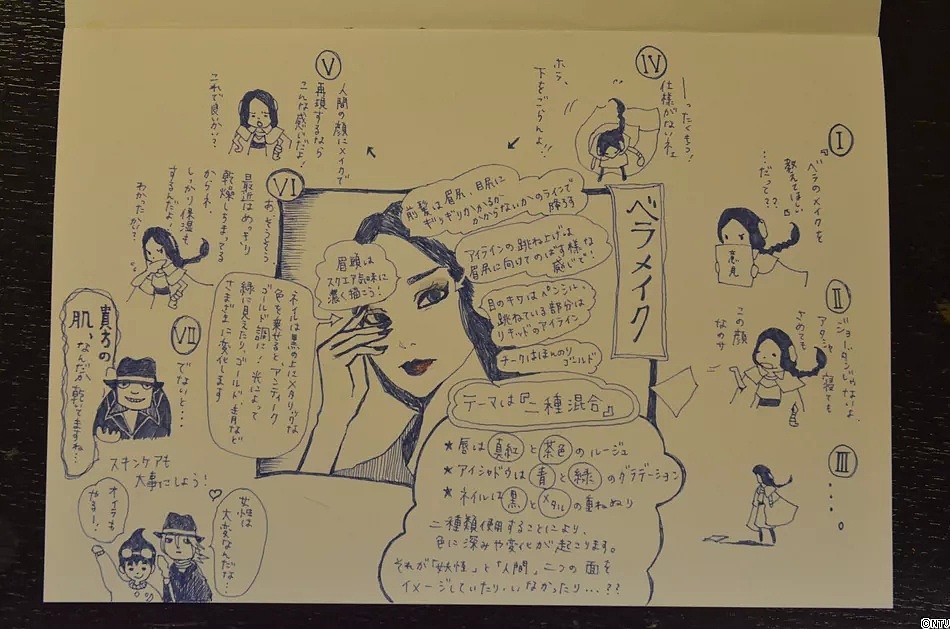 Ⅰ
『ベラのメイクを
教えてほしい』
…だって??
意見
Ⅱ
ジョーダンじゃないよ
アタシャ寝ても
さめても
この顔
なのサ
Ⅲ
・・・・。
Ⅳ
ーったくもう!
仕様がないネェ
ホラ、
下をごらんよ!!
Ⅴ
人間の顔にメイクで
再現するなら
こんな感いだよ!
これで良いかい?
Ⅵ
あ、そうそう
最近はめっきり
乾燥しちまってる
からネ、
しっかり保湿も
するんだよ!
わかったかい?
Ⅶ
でないと…
貴方の
肌、
なんだか乾いてますね…
スキンケアも
大事にしよう!
オイラも
やるー!
女性は
大変なんだな…
ベラメイク
前髪は眉尻、目尻に
ぎりぎりかかるか
かからないかのラインで
降ろす
アイラインの跳ね上げは
眉尻に向けてのばす様な
感じで!
目のキワはペンシル、
跳ねている部分は
リキッドのアイライン
チークはほんのり
ゴールド
眉頭は
スクエア気味に
濃く描こう!
ネイルは黒の上にメタリックな
色を乗せるとアンティーク
ゴールド調に!光によって
緑に見えたり、ゴールド、青など
さまざまに変化します
テーマは『二種混合』
★唇は真紅と茶色のルージュ
★アイシャドウは青と緑のグラデーション
★ネイルは黒とメタルの重ねぬり
二種類使用することにより、
色に深みや変化が起こります。
それが「妖怪」と「人間」二つの面を
イメージしていたり・いなかったり…??
©NTV